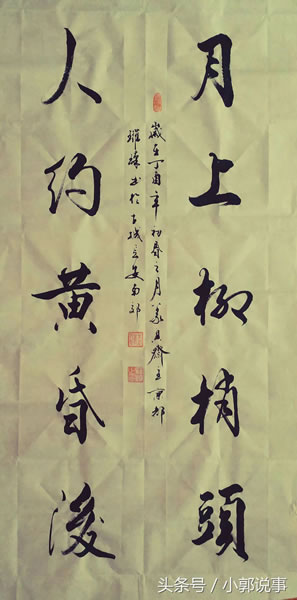 月上柳梢頭
歲在丁酉年初春之月
书於古城安南郊
人约黄昏後
头条号 / 小郭说事